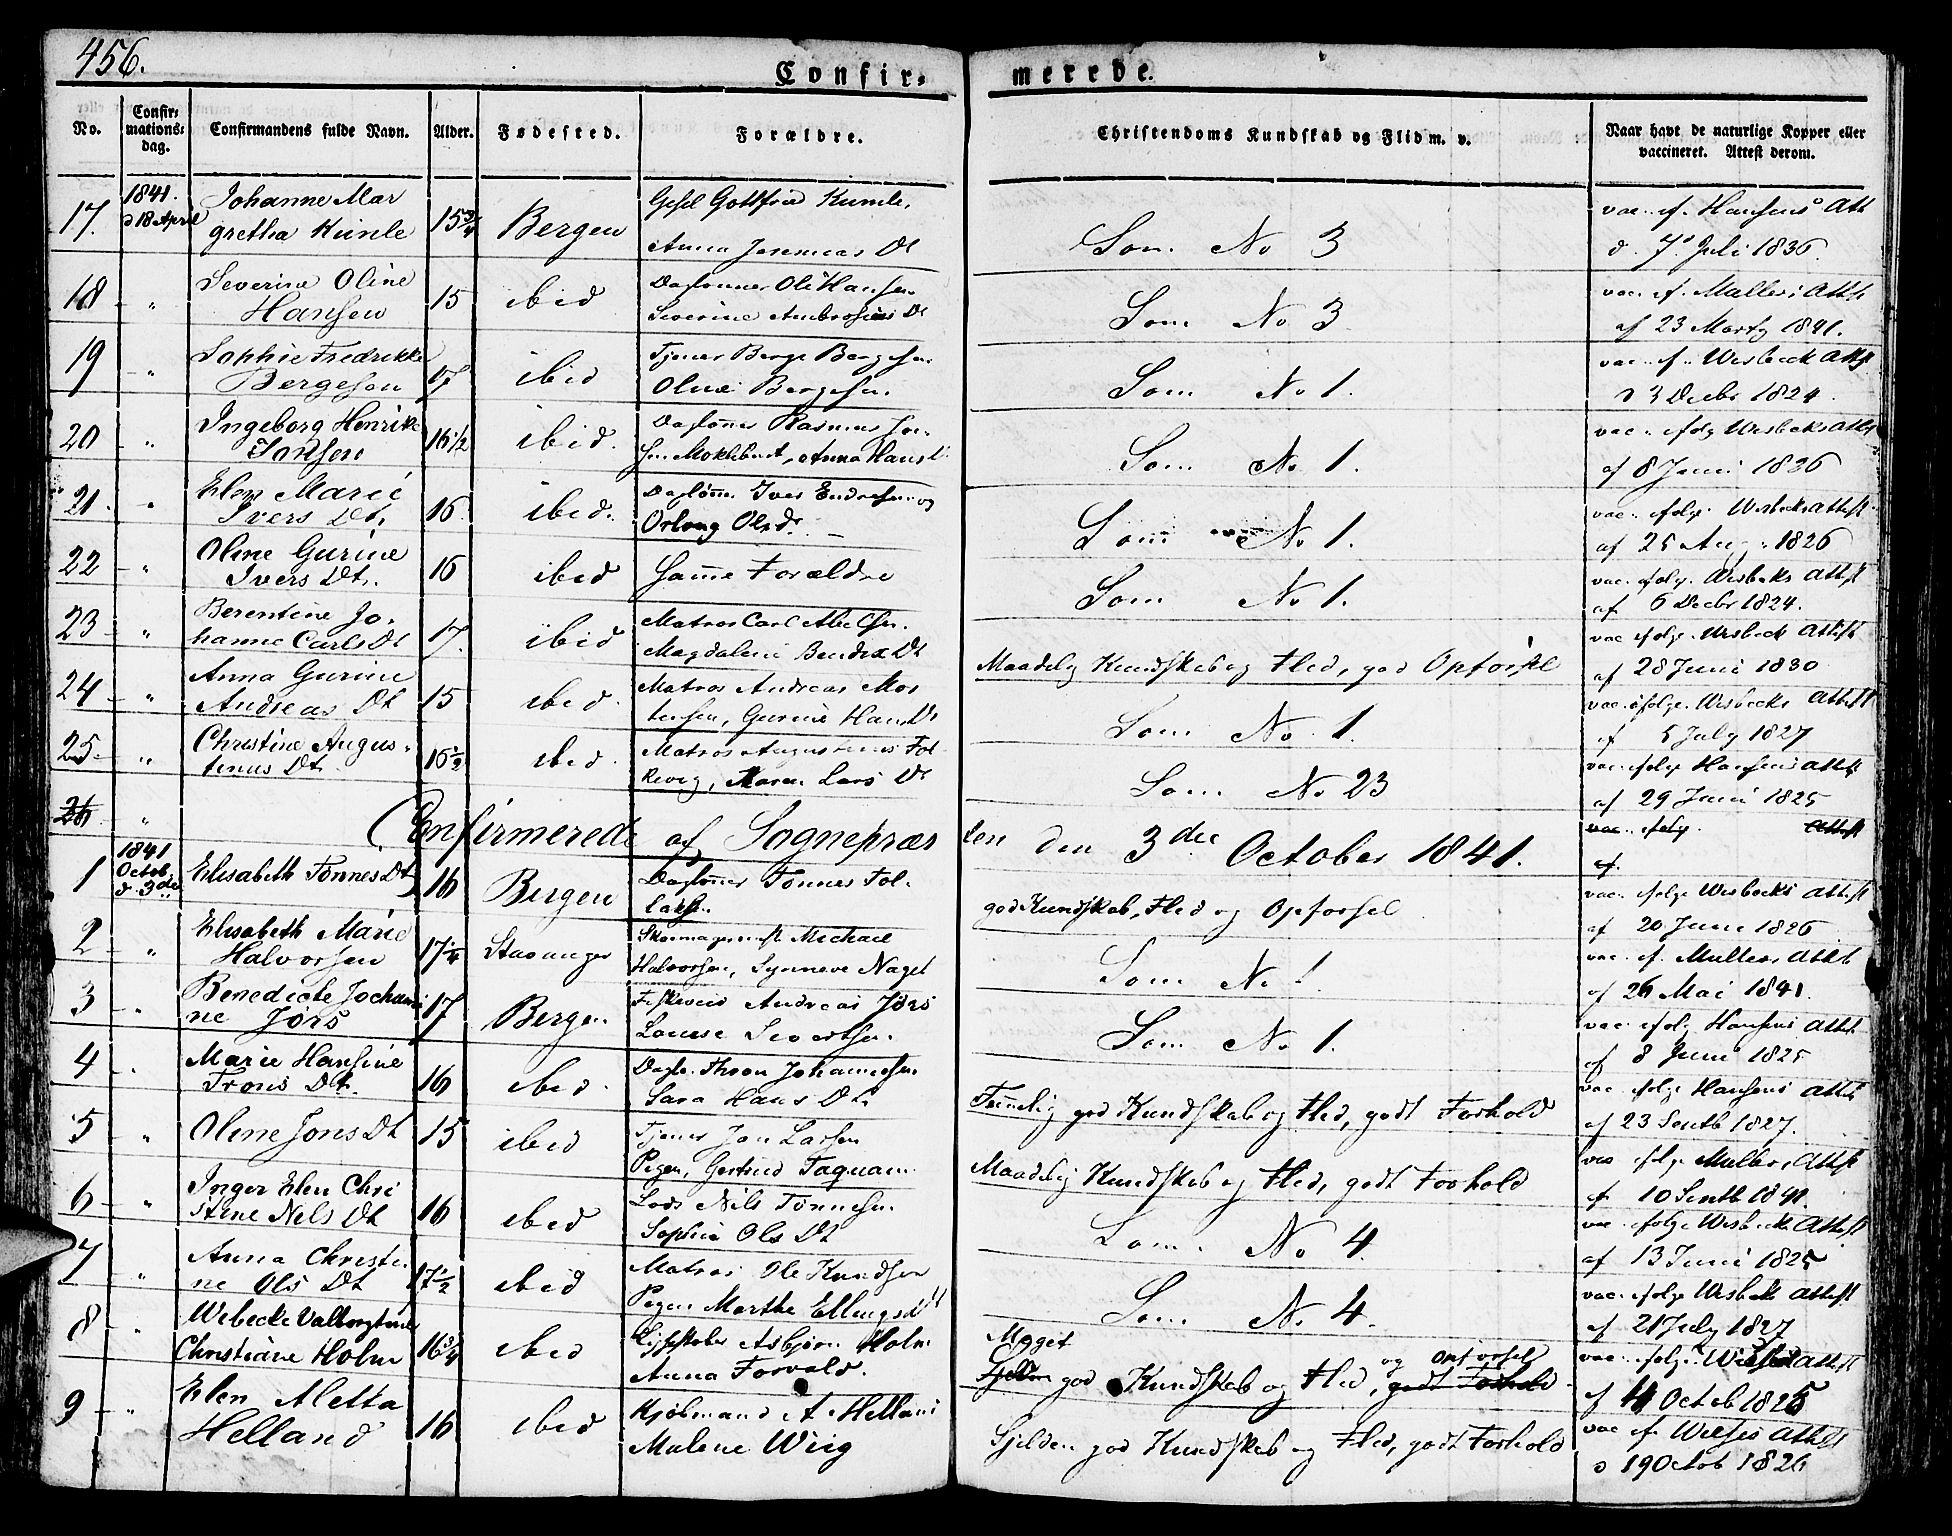 456.
Confir-
merede.
No.
Confir-
mations-
dag.
Confirmandens fulde Navn.
Alder.
Fødested.
Forældre.
Christendoms Kundskab og Flid m. v.
Naar havt de naturlige Kopper eller
vaccineret. Attest derom.
17. 1841. d 18 April Johanne Mar
gretha Kunle 15 3/4 Bergen Gesel Gottfried Kunle,
Anna Jeremias Dt Som No 3 vac. ef. Hansens Att
d. 7. Juli 1836.
18 " Severine Oline
Hansen 15 ibid Daglønner Ole Hansen
Severine Ambrosius Dt Som No 3 vac. ef. Mullers Attst
af 23 Marty 1841.
19 " Sophie Fredrikke
Bergesen 17 ibid Tjener Berge Bergesen
Bergesen. Som No 1. vac. ef. Wisbeck Attst
d 3 Decbr 1824.
20 " Ingeborg Henrike
Jansen 16 1/2 ibid. Daglønner Rasmus Jan-
sen Anna Hans Som No 1. vac. efolg Wisbecks Attst
af 8 Juni 1826
21. " Elen Marie
Ivers Dt. 16 ibid. Daglønner Iver Endresen og
Ols d. Som No 1. vac. efolge Wisbecks Attest
af 25 Aug. 1826
22 " Oline Gurine
Ivers Dt. 16 ibid Samme Forældre Som No 1. vac. efolg. Wisbecks Attest
af 6 Decbr 1824.
23 " Berentine Jo-
hanne Carls Dt 17. ibid Matros Carl
Magdalene Bendix Dt Maadelig Kundskab og Flid, god Opførsel vac efolge. Wisbeck Attest
af 28 Juni 1830
24 " Anna Gurine
Andreas Dt 15 ibid. Matros Andreas Mor
tensen, Gurine Hans Dt Som No. 1. vac. efolge. Wisbecks Attest
af 5 July 1827
25. " Christine Augus-
tinus Dt. 16 1/2 ibid. Matros Augustinus Fol
kevig, Maren Lars Dt Som No 23 vac. efolge Hansens Attst
af 29 Juni 1825
26 " vac. efolg. Attest
af.
Confirmerede af Sognepræs
ten den 3die October 1841.
1 1841 Octob. d. 3die Elisabeth Tønnes Dt 16 Bergen Daglønner Tønnes Tol-
laksen god Kundskab, Flid og Opførsel vac. efolge Wisbecks Attest
af 20 Juni 1826
2 " Elisabeth Marie
Halvorsen 17 1/4 Stavanger Skomagermst Michael
Halvorsen, Synneve Naget Som No 1. vac. ef. Mullers Attst
af 26 Mai 1841.
3 " Benedicte Jochumi
ne Jørs 17 Bergen. Andreas Jørs
Lovise Sivertsen. Som No 1. vac. efolg Hansens Attst.
af 8 Juni 1825
4 " Marie Hansine
Trons Dt. 16 ibid. Dagl. Thron Johannesen
Sara Hans Dt. Temmelig god Kundskab og Flid, godt Forhold vac. efolge Hansens Attest
af 23 Septb 1827.
5 " Oline Jons Dt 15 ibid Tjener Jon Larsen
Pigen, Gertrud Maadelig Kundskab og Flid, godt Forhold vac efolge Mullers Attst
af 10 Septb 1841.
6 " Inger Elen Chri
stine Nils Dt 16 ibid Lods Nils Tønnesen
Sophie Ols Dt Som No 4. vac. efolge Wisbecks Attest
af 13 Juni 1825
7 " Anna Christi-
ne Ols Dt 17 1/2 ibid Matros Ole Knudsen
Pigen Marthe Ellings Dt Som No. 4. vac. efolge Wisbeck Attest
af 21 July 1827
8 " Wibecke Valborg
Christiane Holm 16 3/4 ibid Asbjørn Holm
Anna Torvald. Meget god Kundskab og Flid, og Opførsel godt Forhold vac. efolge Attst
af 4 Octob 1825
9 " Elen Aletta
Helland 16 ibid Kjøbmand A Helland
Malene Wiig Sjelden god Kundskab og Flid, godt Forhold vac ef. Attst
d 19 Octob 1826